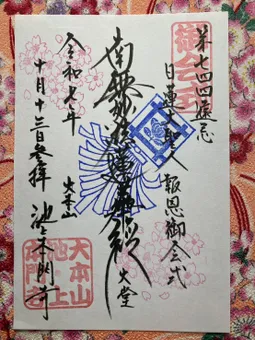 御会式
第七四四遠忌
日蓮大聖人 報恩御会式
南無妙法蓮華経
大堂
令和七年
大本山
十月十三日参拝 池上本門寺
大本山
池上
本門寺